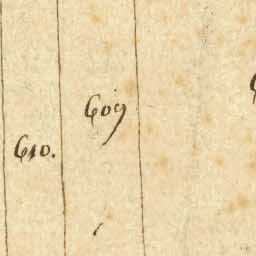 609
610.